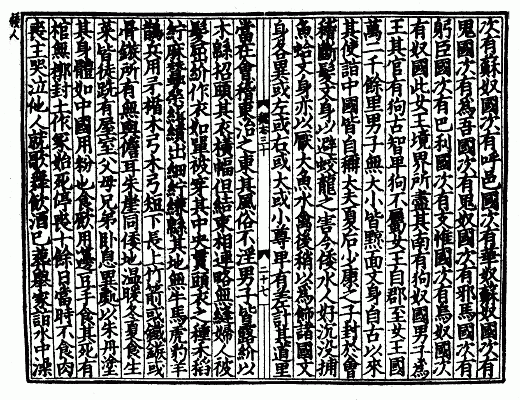 倭人
次有蘇奴國次有呼邑國次有華奴蘇奴國次有
鬼國次有爲吾國次有鬼奴國次有邪馬國次有
躬臣國次有巴利國次有支惟國次有烏奴國次
有奴國此女王境界所盡其南有狗奴國男子爲
王其官有狗古智卑狗不屬女王自郡至女王國
萬二千餘里男子無大小皆黥面文身自古以來
其使詣中國皆自稱大夫夏后少康之子封於會
稽斷髮文身以避蛟龍之害今倭水人好沈没捕
魚蛤文身亦以厭大魚水禽後稍以爲飾諸國文
身各異或左或右或大或小尊卑有差計其道里
魏志三十
二十七
當在會稽東治之東其風俗不淫男子皆露紒以
木緜招頭其衣橫幅但結束相連略無縫婦人被
髮屈紒作衣如單被穿其中央貫頭衣之種禾稻
紵麻蠶桑緝績出細紵縑緜其地無牛馬虎豹羊
鵲兵用矛楯木弓木弓短下長上竹箭或鐵鏃或
骨鏃所有無與儋耳朱崖同倭地溫暖冬夏食生
菜皆徒跣有屋室父母兄弟臥息異處以朱丹塗
其身體如中國用粉也食飲用籩豆手食其死有
棺無槨封土作冢始死停喪十餘日當時不食肉
喪主哭泣他人就歌舞飲酒已葬舉家詣水中澡